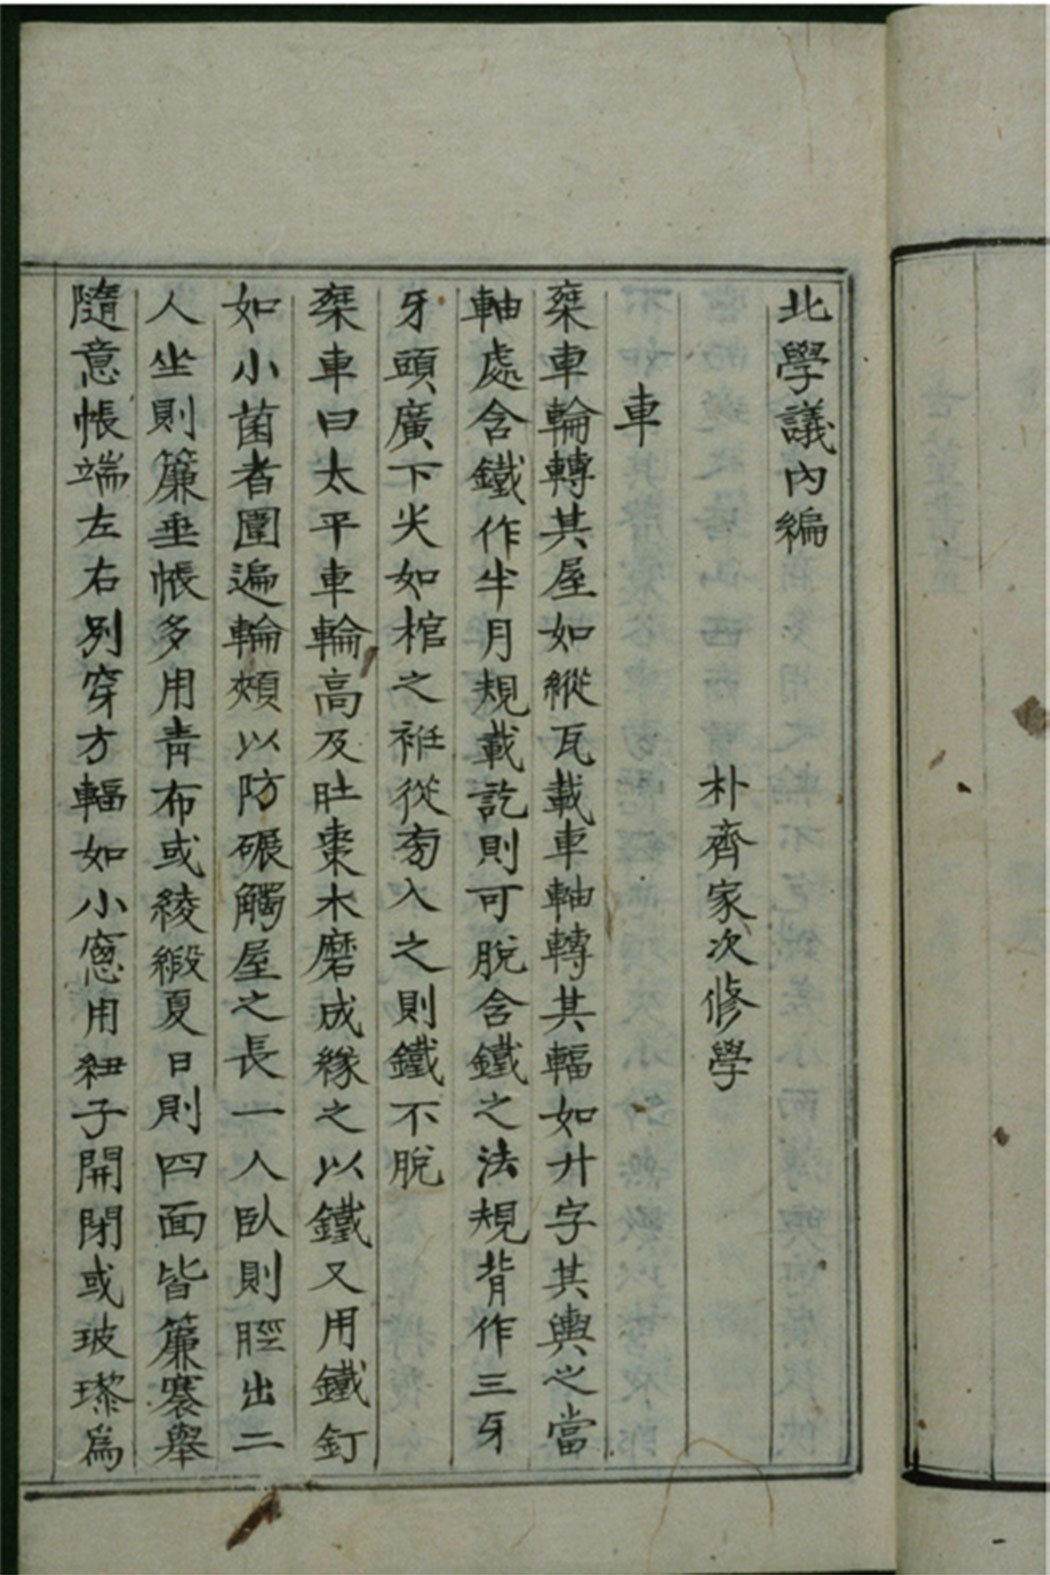 北學議內編
朴齊家次修學
車
椉車輪轉其屋如縱瓦載車軸轉其輻如廾字其輿之當
軸處含鐵作半月規載訖則可脫含鐵之法規背作三牙
牙頭廣下尖如棺之袵從旁入之則鐵不脫
椉車曰太平車輪高及肚棗木磨成緣之以鐵又用鐵釘
如小菌者圍遍輪頰以防碾觸屋之長一人臥則脛出二
人坐則簾垂帳多用靑布或綾緞夏日則四面皆簾褰擧
隨意帳端左右別穿方輻如小窓用紐子開閉或玻瓈爲